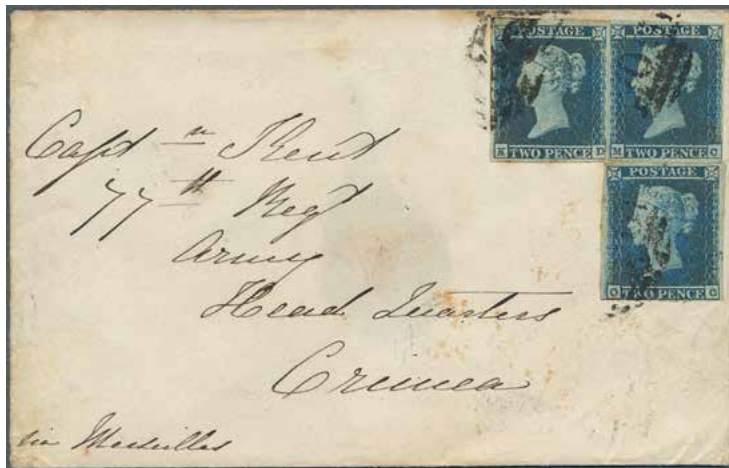 POSTAGE POSTAGE
K D M C
TWO PENCE TWO PENCE
POSTAGE
TWO PENCE
Captn Kent
77th Regt
Army
Head Quarters
Crimea
via Marseilles